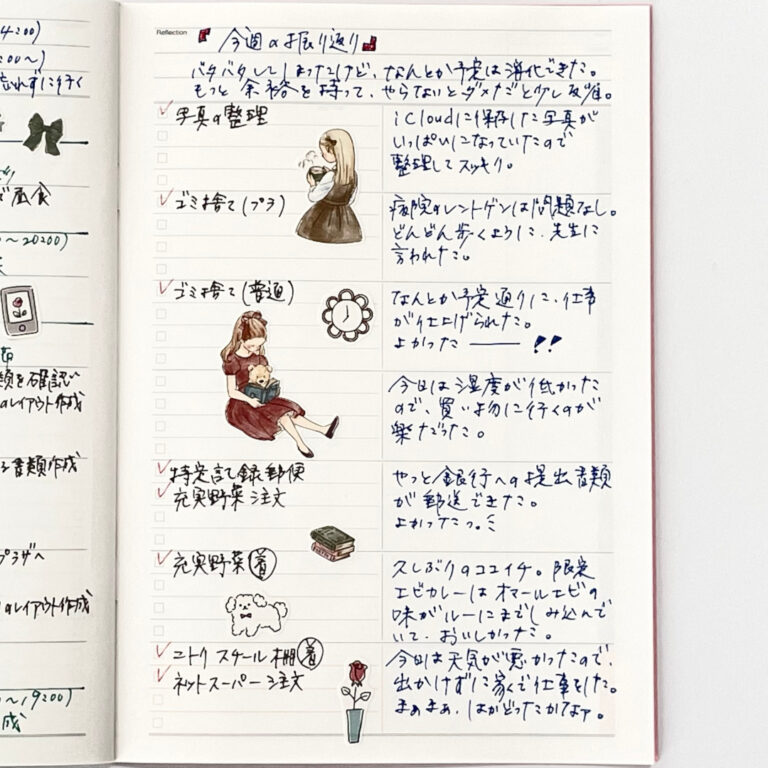 4200)
00〜)
忘れずに行く
で昼食
〜20200)
類を確認
のレイアウト作成
書類作成
プラザへ
のレイアウト作成
〜19200)
成
Reflection
今週の振り返り
バタバタしてしまったけど、なんとか予定は消化できた。
もっと余裕を持って、やらないとダメだと少し反省。
写真の整理
iCloudに保存した写真が
いっぱいになっていたので
整理してスッキリ。
ゴミ捨て(プラ)
病院のレントゲンは問題なし。
どんどん歩くように、先生に
言われた。
ゴミ捨て(普通)
なんとか予定通りに、仕事
が仕上げられた。
よかった——!!
今日は湿度が低かった
ので、買い物に行くのが
楽だった。
特定記録郵便
充実野菜注文
やっと銀行への提出書類
が郵送できた。
よかったっ。
充実野菜(着)
久しぶりのココイチ。限定
エビカレーはオマールエビの
味がルーにまでしみ込んで
いて、おいしかった。
ニトリスチール棚(着)
ネットスーパー注文
今日は天気が悪かったので、
出かけずに家で仕事をした。
まぁまぁ、はかどったかなァ。